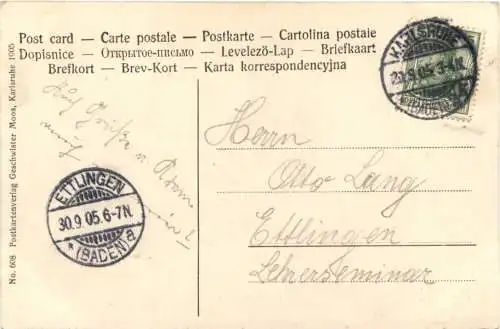 Post card — Carte postale — Postkarte — Cartolina postale
Dopisnice — Открытое-письмо — Levelező-Lap — Briefkaart
Brefkort — Brev-Kort — Karta korrespondencyjna
KARLSRUHE
.9.05.
ETTLINGEN
30.9.05.6-7N.
* (BADEN) a
Herrn
Otto Lang
Ettlingen
Lehrerseminar
No. 608 Postkartenverlag Geschwister Moos, Karlsruhe 1905